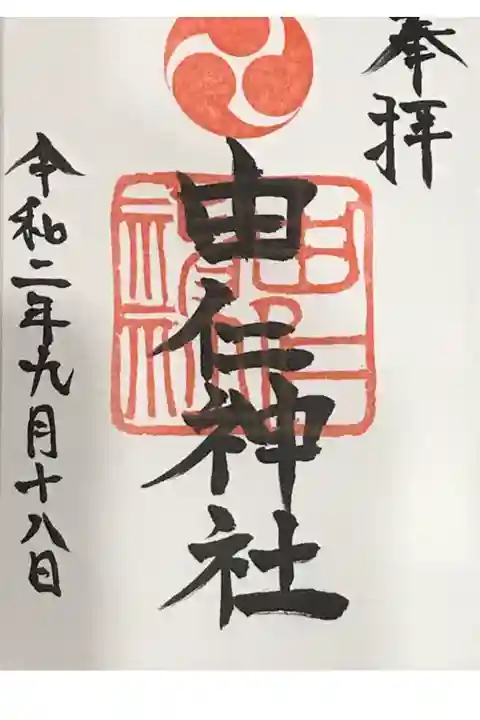 奉拝
由仁神社
令和二年九月十八日